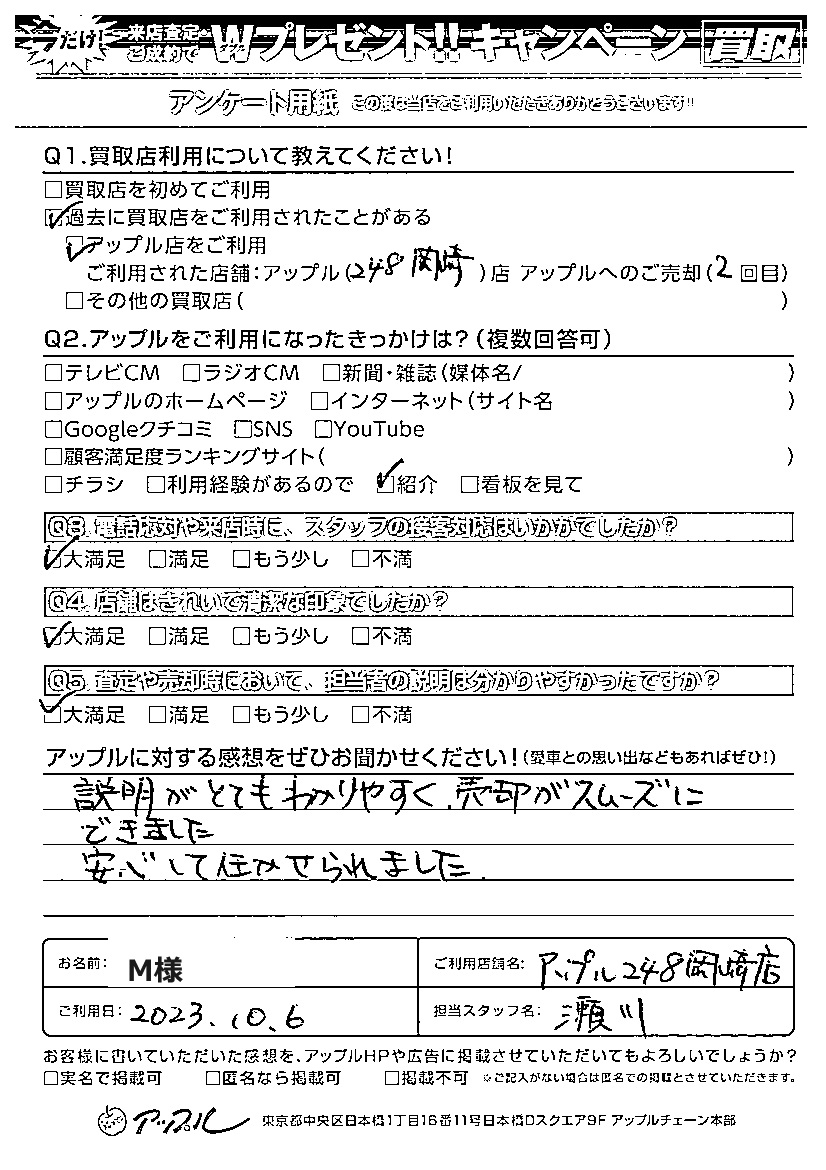 今だけ! 来店査定・ご成約で Wプレゼント!! キャンペーン 買取
アンケート用紙 この度は当店をご利用いただきありがとうございます!!
Q1.買取店利用について教えてください!
□買取店を初めてご利用
☑過去に買取店をご利用されたことがある
☑アップル店をご利用
ご利用された店舗:アップル(248岡崎)店 アップルへのご売却(2回目)
□その他の買取店( )
Q2.アップルをご利用になったきっかけは?(複数回答可)
□テレビCM □ラジオCM □新聞・雑誌(媒体名/ )
□アップルのホームページ □インターネット(サイト名 )
□Googleクチコミ □SNS □YouTube
□顧客満足度ランキングサイト( )
□チラシ □利用経験があるので ☑紹介 □看板を見て
Q3.電話応対や来店時に、スタッフの接客対応はいかがでしたか?
☑大満足 □満足 □もう少し □不満
Q4.店舗はきれいで清潔な印象でしたか?
☑大満足 □満足 □もう少し □不満
Q5.査定や売却時において、担当者の説明は分かりやすかったですか?
☑大満足 □満足 □もう少し □不満
アップルに対する感想をぜひお聞かせください!(愛車との思い出などもあればぜひ!)
説明がとてもわかりやすく、売却がスムーズに
できました
安心して任かせられました.
お名前: M様 ご利用店舗名: アップル248岡崎店
ご利用日: 2023.10.6 担当スタッフ名: 瀬川
お客様に書いていただいた感想を、アップルHPや広告に掲載させていただいてもよろしいでしょうか?
□実名で掲載可 □匿名なら掲載可 □掲載不可 ※ご記入がない場合は匿名での掲載とさせていただきます。
アップル 東京都中央区日本橋1丁目16番11号日本橋Dスクエア9F アップルチェーン本部